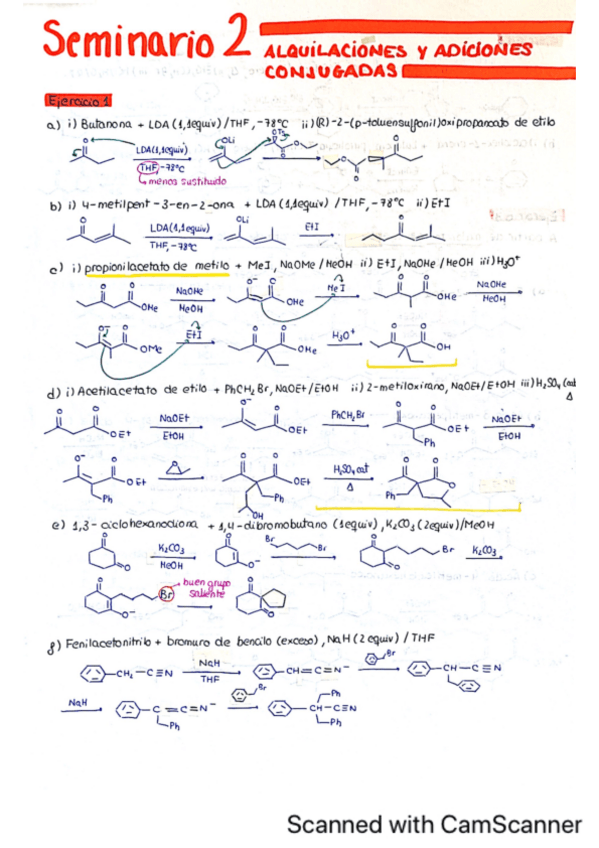 Seminario 2 ALQUILACIONES Y ADICIONES
CONJUGADAS
Ejercicio 1
a) i) Butanona + LDA (1,1equiv) / THF, -78ºC ii) (R)-2-(p-toluensulfonil)oxipropanoato de etilo
O LDA (1,1equiv) OLi OTs O O
THF, -78ºC
menos sustituido
b) i) 4-metilpent-3-en-2-ona + LDA (1,1equiv) / THF, -78ºC ii) EtI
O LDA (1,1equiv) OLi EtI O
THF, -78ºC
c) i) propionilacetato de metilo + MeI, NaOMe / MeOH ii) EtI, NaOMe / MeOH iii) H3O+
O O OMe NaOMe O- O OMe MeI O O OMe NaOMe
MeOH MeOH
O- O OMe EtI O O OMe H3O+ O O OH
d) i) Acetilacetato de etilo + PhCH2Br, NaOEt / EtOH ii) 2-metiloxirano, NaOEt / EtOH iii) H2SO4 (cat
Δ
O O OEt NaOEt O- O OEt PhCH2Br O O OEt NaOEt
EtOH Ph EtOH
O- O OEt O O O OEt H2SO4 cat O O
Ph Ph OH Δ Ph O
e) 1,3-ciclohexanodiona + 1,4-dibromobutano (1equiv), K2CO3 (2equiv) / MeOH
O O K2CO3 O O- Br Br O O Br K2CO3
MeOH
O O- Br buen grupo
saliente O O
g) Fenilacetonitrilo + bromuro de bencilo (exceso), NaH (2 equiv) / THF
CH2-C≡N NaH CH=C=N- Br CH-C≡N
THF
NaH C=C=N- Br CH-C≡N
Ph Ph Ph
Scanned with CamScanner